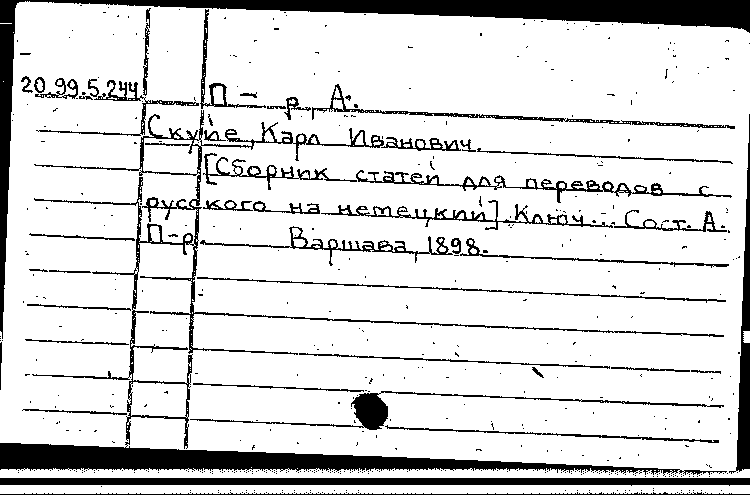 20.99.5.244 П - р, А.
Скупе, Карл Иванович.
[Сборник статей для переводов с
русского на немецкий]. Ключ... Сост. А.
П-р. Варшава, 1898.